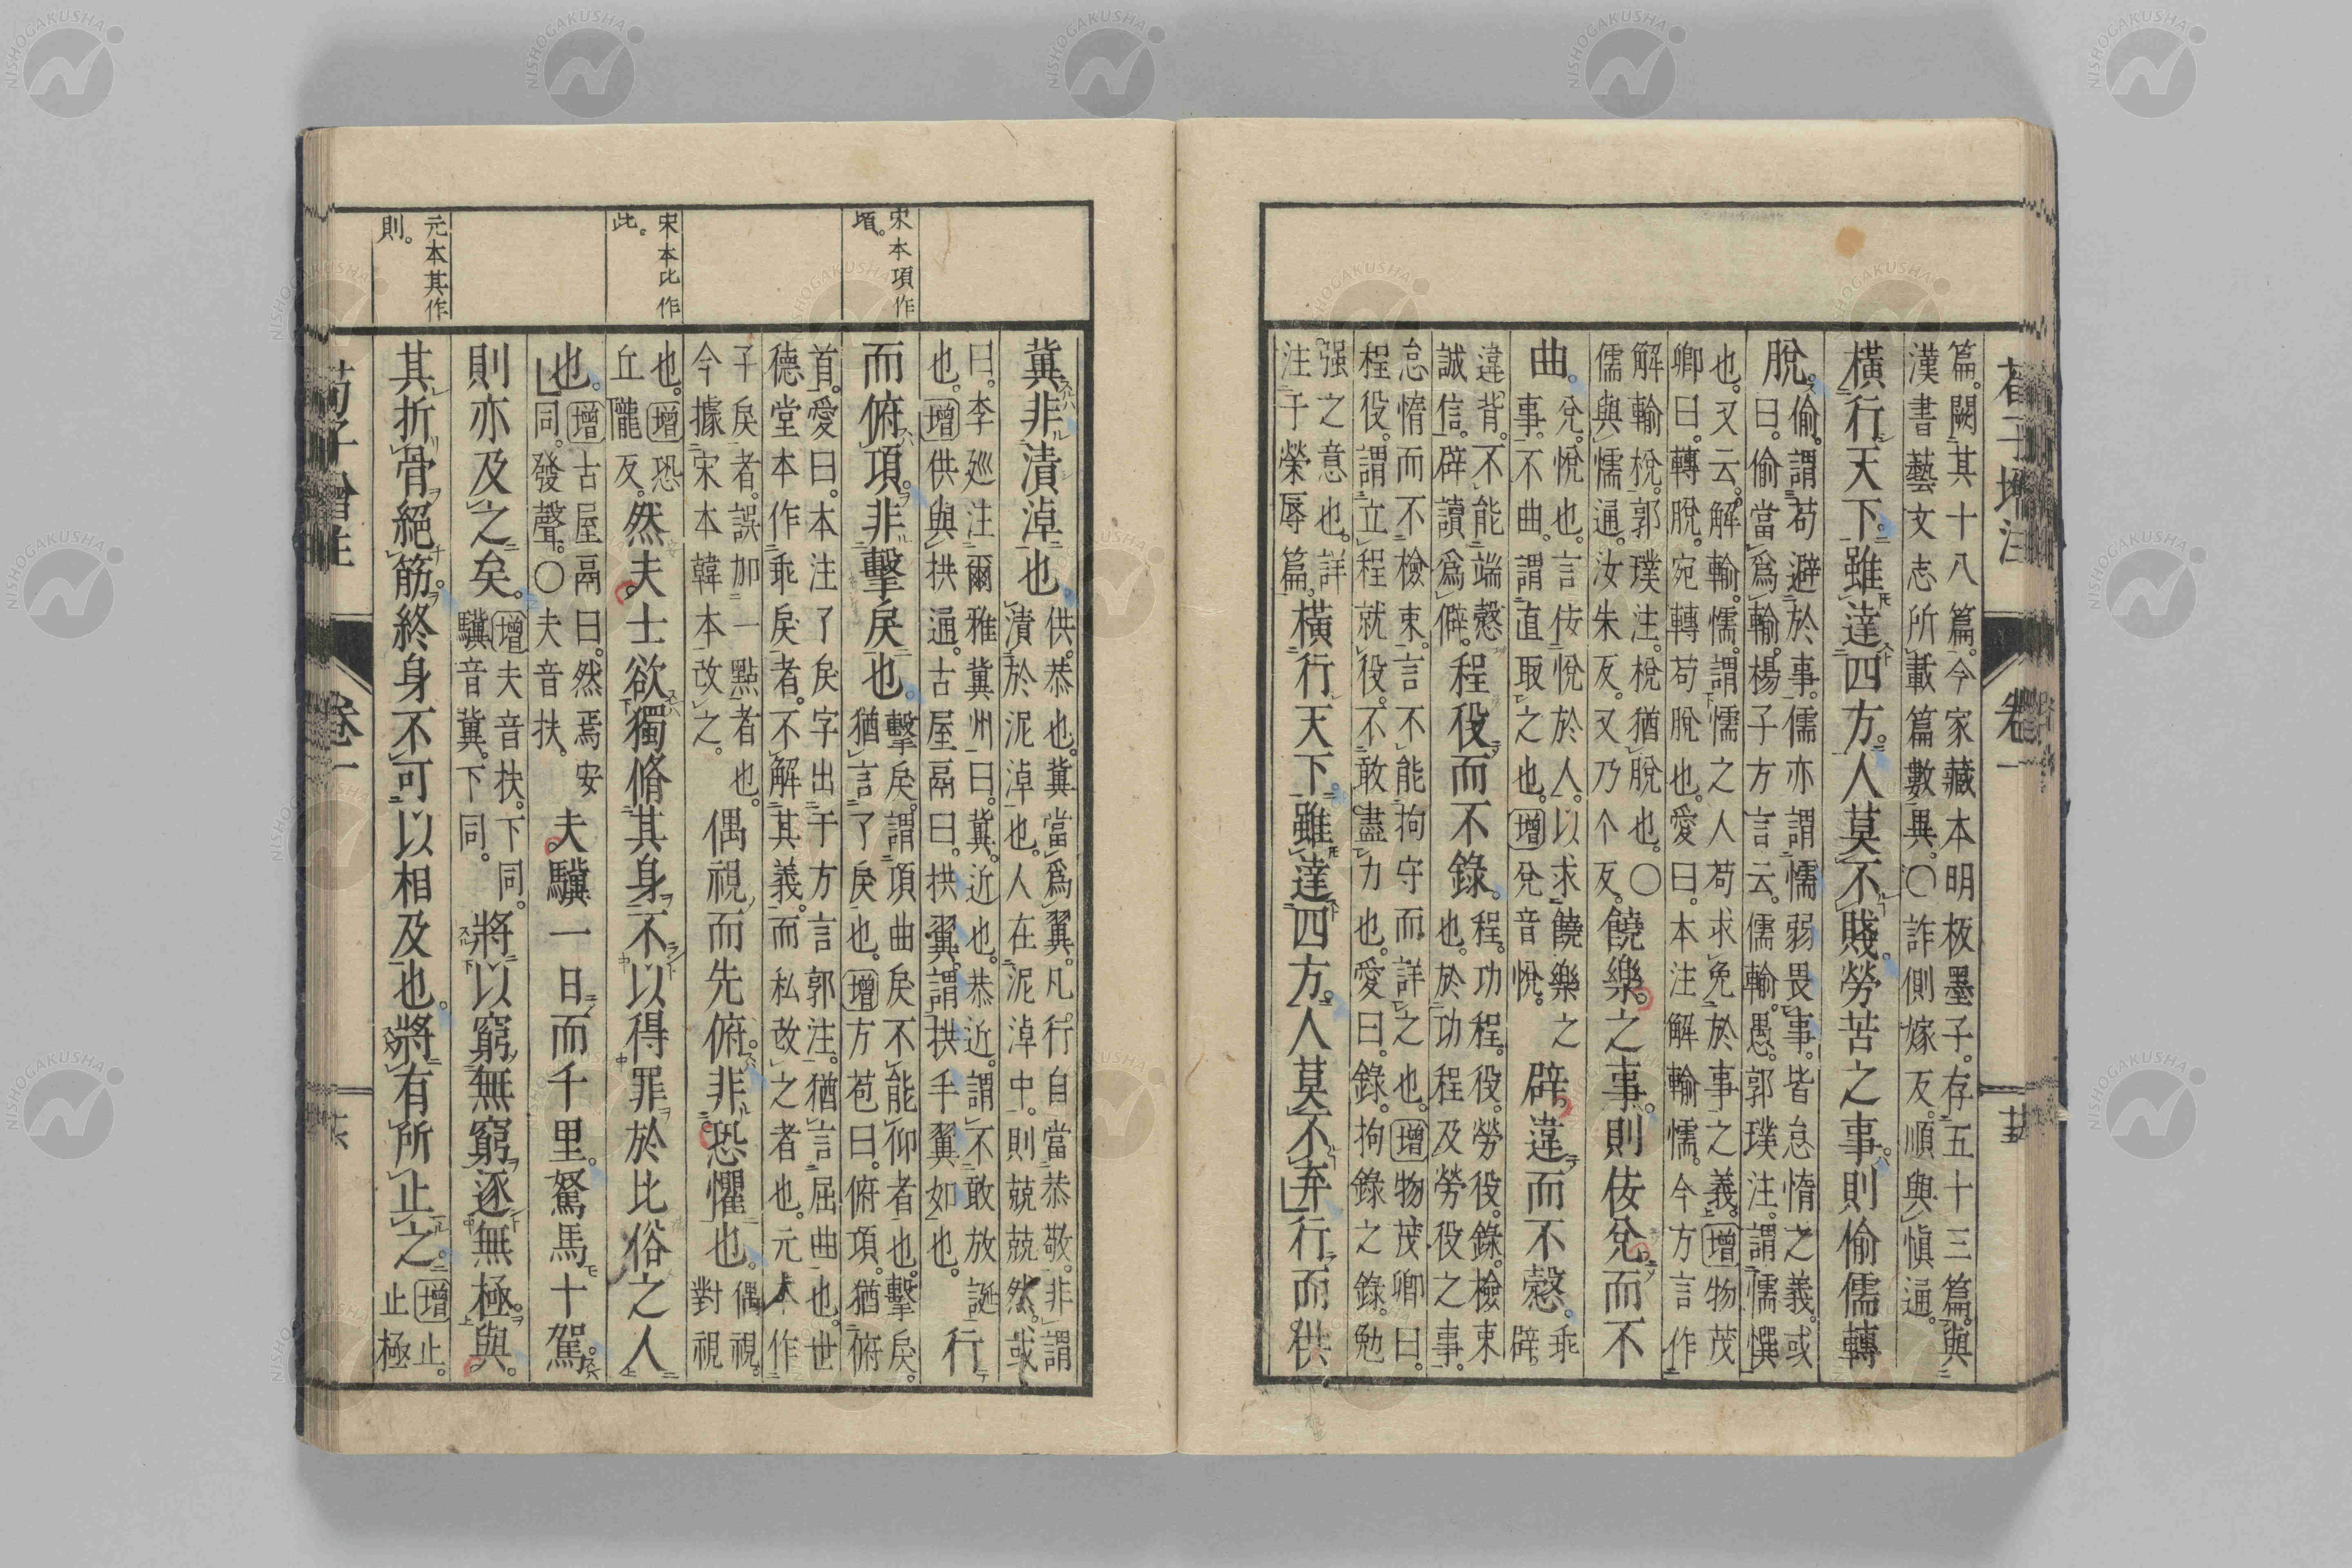 荀子增注 卷一 廿五
篇。闕其十八篇。今家藏本明板墨子。存五十三篇。與
漢書藝文志所載篇數異。○詐側嫁反。順與愼通。
橫行天下。雖達四方。人莫不賤。勞苦之事。則偷儒轉
脫。偷。謂苟避於事。儒亦謂懦弱畏事。皆怠惰之義。或
曰。偷當爲輸。楊子方言云。儒輸。愚。郭璞注。謂懦㒟
也。又云。解輸。懦。謂懦之人苟求免於事之義。增物茂
卿曰。轉脫。宛轉苟脫也。愛曰。本注解輸懦。今方言作
解輸梲。郭璞注。梲猶脫也。○
儒與懦通。汝朱反。又乃个反。饒樂之事。則佞兌而不
曲。兌。悅也。言佞悅於人。以求饒樂之
事。不曲。謂直取之也。增兌音悅。辟違而不慤。乖辟
違背。不能端慤
誠信。辟讀爲僻。程役而不錄。程。功程。役。勞役。錄。檢束
也。於功程及勞役之事。
怠惰而不檢束。言不能拘守而詳之也。增物茂卿曰。
程役。謂立程就役。不敢盡力也。愛曰。錄。拘錄之錄。勉
强之意也。詳
注于榮辱篇。橫行天下。雖達四方。人莫不弃。行而供
冀非漬淖也。供。恭也。冀當爲翼。凡行自當恭敬。非謂
漬於泥淖也。人在泥淖中。則兢兢然。或
曰。李巡注爾雅冀州曰。冀。近也。恭近。謂不敢放誕
也。增供與拱通。古屋鬲曰。拱翼。謂拱手翼如也。行
宋本項作
頊。
而俯項。非擊戾也。擊戾。謂項曲戾不能仰者也。擊戾。
猶言了戾也。增方苞曰。俯項。猶俯
首。愛曰。本注了戾字出于方言郭注。猶言屈曲也。世
德堂本作乖戾者。不解其義。而私改之者也。元本作
子戾者。誤加一點者也。
今據宋本韓本改之。偶視而先俯。非恐懼也。偶視。
對視
宋本比作
此。
也。增恐
丘隴反。然夫士欲獨脩其身。不以得罪於比俗之人
也。增古屋鬲曰。然焉安
同。發聲。○夫音扶。夫驥一日而千里。駑馬十駕。
則亦及之矣。增夫音扶。下同。
驥音冀。下同。將以窮無窮。逐無極。與。
元本其作
則。
其折骨絕筋。終身不可以相及也。將有所止之。增止。
止極
荀子增注 卷一